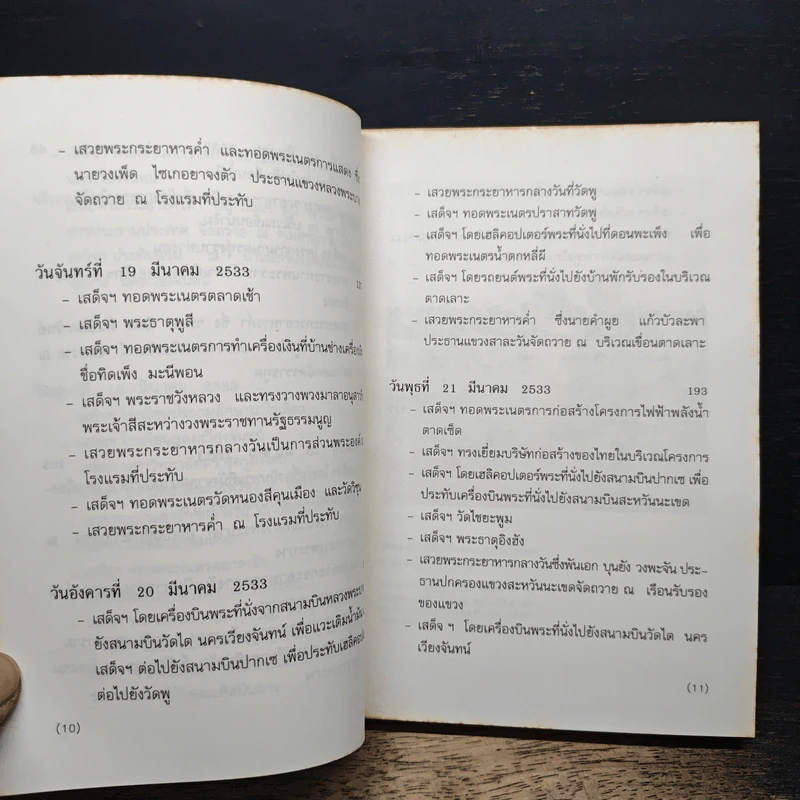 - เสวยพระกระยาหารค่ำ และทอดพระเนตรการแสดง ซึ่ง
นายวงเพ็ด ไซเกอยาจงตัว ประธานแขวงหลวงพระบาง
จัดถวาย ณ โรงแรมที่ประทับ
วันจันทร์ที่ 19 มีนาคม 2533
- เสด็จฯ ทอดพระเนตรตลาดเช้า
- เสด็จฯ พระธาตุพูสี
- เสด็จฯ ทอดพระเนตรการทำเครื่องเงินที่บ้านช่างเครื่องเงิน
ชื่อทิดเพ็ง มะนีพอน
- เสด็จฯ พระราชวังหลวง และทรงวางพวงมาลาอนุสาวรีย์
พระเจ้าสีสะหว่างวงพระราชทานรัฐธรรมนูญ
- เสวยพระกระยาหารกลางวันเป็นการส่วนพระองค์ ณ
โรงแรมที่ประทับ
- เสด็จฯ ทอดพระเนตรวัดหนองสีคุนเมือง และวัดวิชุน
- เสวยพระกระยาหารค่ำ ณ โรงแรมที่ประทับ
วันอังคารที่ 20 มีนาคม 2533
- เสด็จฯ โดยเครื่องบินพระที่นั่งจากสนามบินหลวงพระบาง
ยังสนามบินวัดไต นครเวียงจันทน์ เพื่อแวะเติมน้ำมัน
เสด็จฯ ต่อไปยังสนามบินปากเซ เพื่อประทับเฮลิคอปเตอร์
ต่อไปยังวัดพู
(10)
- เสวยพระกระยาหารกลางวันที่วัดพู
- เสด็จฯ ทอดพระเนตรปราสาทวัดพู
- เสด็จฯ โดยเฮลิคอปเตอร์พระที่นั่งไปที่ดอนพะเพ็ง เพื่อ
ทอดพระเนตรน้ำตกหลี่ผี
- เสด็จฯ โดยรถยนต์พระที่นั่งไปยังบ้านพักรับรองในบริเวณ
ตาดเลาะ
- เสวยพระกระยาหารค่ำ ซึ่งนายคำผูย แก้วบัวละพา
ประธานแขวงสาละวันจัดถวาย ณ บริเวณเขื่อนตาดเลาะ
วันพุธที่ 21 มีนาคม 2533 193
- เสด็จฯ ทอดพระเนตรการก่อสร้างโครงการไฟฟ้าพลังน้ำ
ตาดเซ็ด
- เสด็จฯ ทรงเยี่ยมบริษัทก่อสร้างของไทยในบริเวณโครงการ
- เสด็จฯ โดยเฮลิคอปเตอร์พระที่นั่งไปยังสนามบินปากเซ เพื่อ
ประทับเครื่องบินพระที่นั่งไปยังสนามบินสะหวันนะเขด
- เสด็จฯ วัดไชยะพูม
- เสด็จฯ พระธาตุอิงฮัง
- เสวยพระกระยาหารกลางวันซึ่งพันเอก บุนยัง วงพะจัน ประ-
ธานปกครองแขวงสะหวันนะเขดจัดถวาย ณ เรือนรับรอง
ของแขวง
- เสด็จ ฯ โดยเครื่องบินพระที่นั่งไปยังสนามบินวัดไต นคร
เวียงจันทน์
(11)